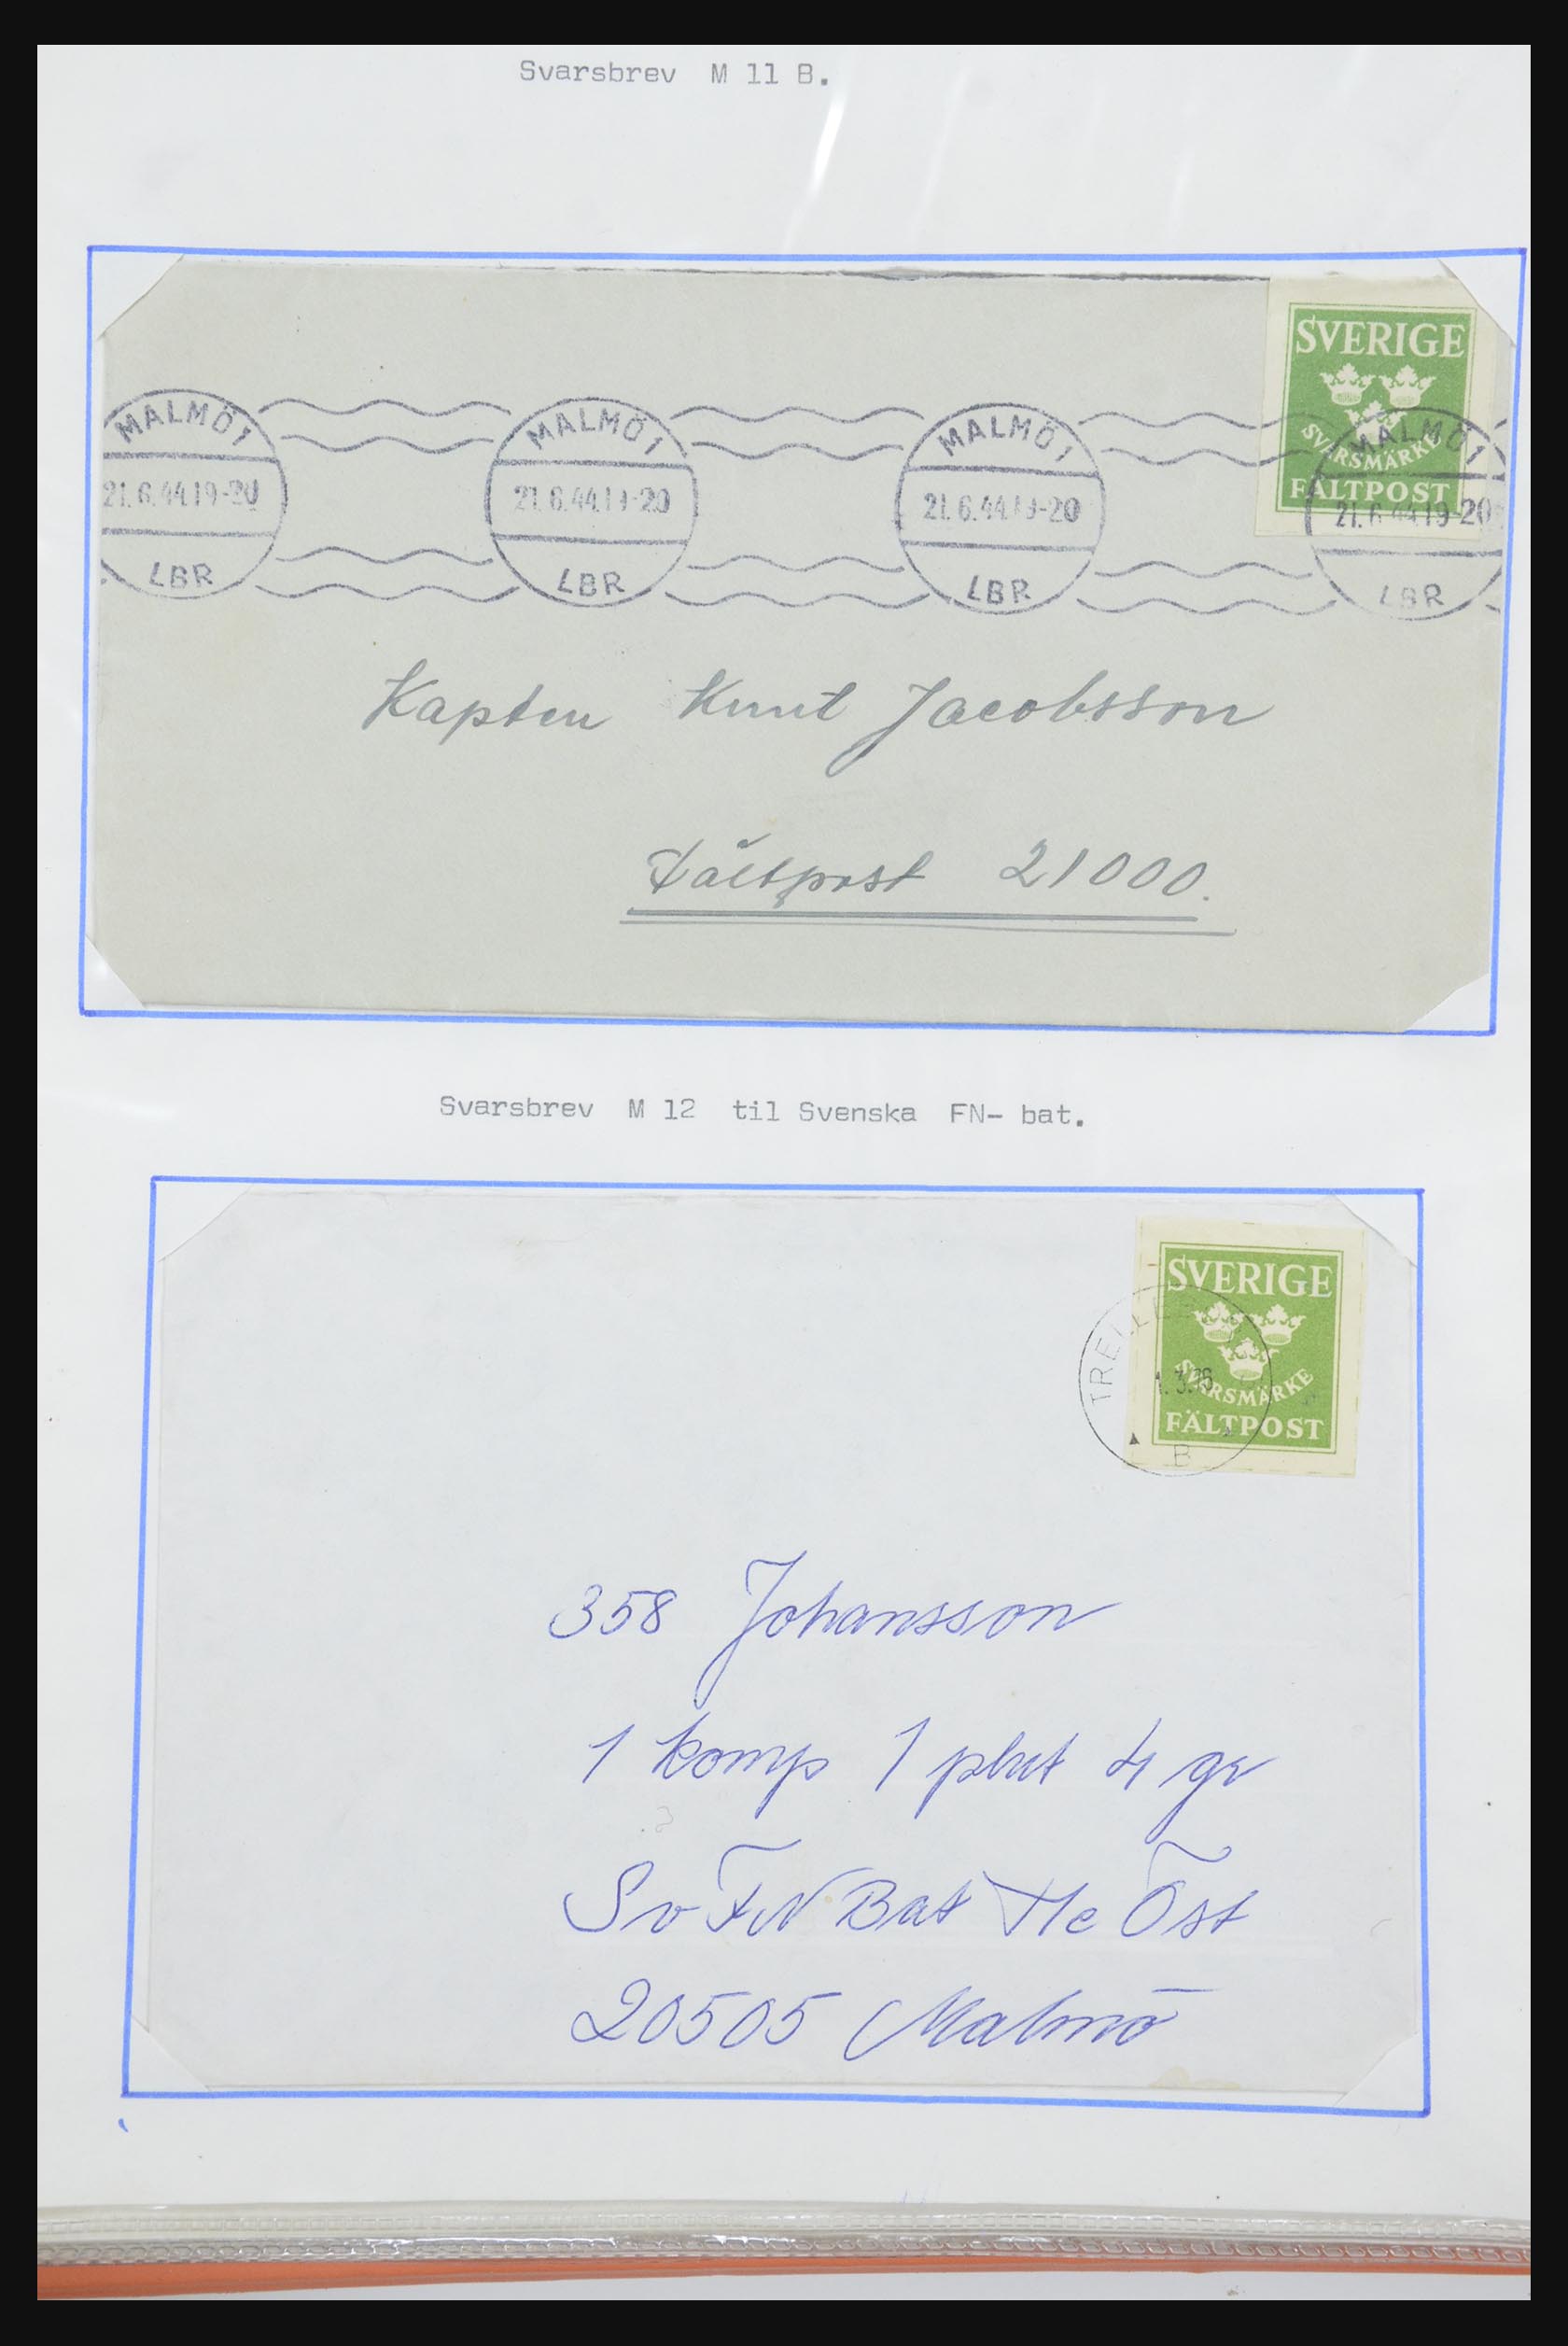 Svarsbrev M 11 B.
SVERIGE
SVARSMÄRKE
FÄLTPOST
MALMÖ 1
21.6.44.19-20
LBR
MALMÖ 1
21.6.44.19-20
LBR
MALMÖ 1
21.6.44.19-20
LBR
MALMÖ 1
21.6.44.19-20
LBR
Kapten Knut Jacobsson
Fältpost 21000.
Svarsbrev M 12 til Svenska FN- bat.
SVERIGE
SVARSMÄRKE
FÄLTPOST
B
358 Johansson
1 komp 1 plut 4 gr
Sv FN Bat M e Öst
20505 Malmö